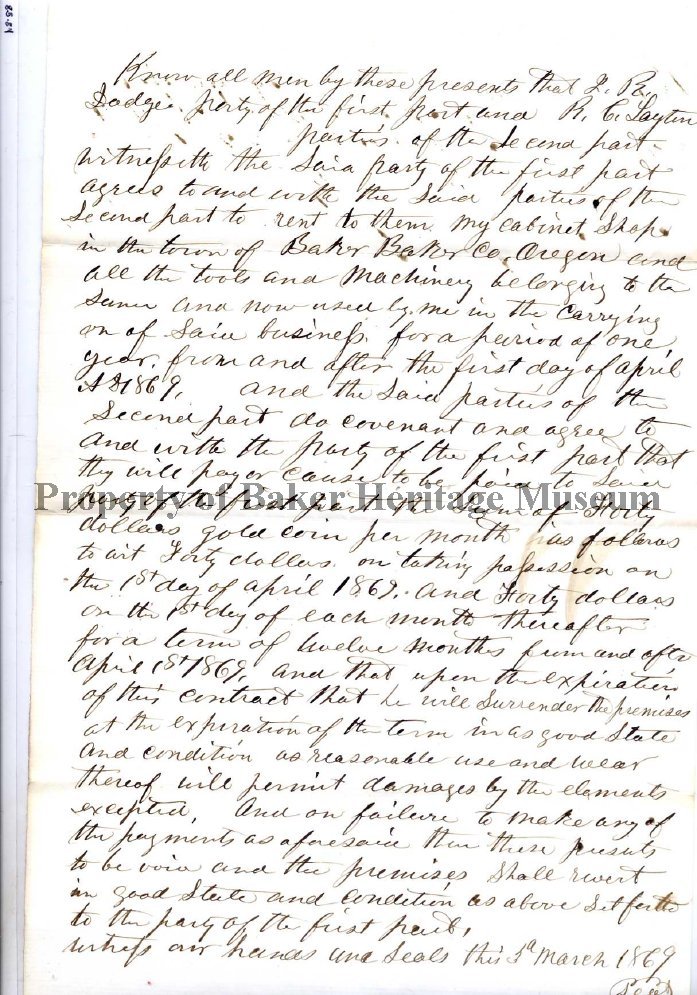 88-89
Know all men by these presents that
Dodge party of the first part and R. C. Layton
parties of the Second part
witnesseth the Said party of the first part
agrees to and with the Said parties of the
Second part to rent to them my cabinet Shop
in the town of Baker Baker Co. Oregon and
all the tools and Machinery belonging to the
Same and now used by me in the Carrying
on of Said business for a period of one
year, from and after the first day of april
AD 1869, and the Said parties of the
Second part do covenant and agree to
and with the party of the first part that
they will pay or cause to be paid to Said
Property of Baker Heritage Museum
party of first part the Sum of Forty
dollars gold coin per month as follows
to wit Forty dollars on taking possession on
the 1st day of april 1869. and Forty dollars
on the 1st day of each month thereafter
for a term of twelve months from and after
April 1st 1869, and that upon the expiration
of this contract that he will Surrender the premises
at the expiration of the term in as good State
and condition as reasonable use and wear
thereof will permit damages by the elements
excepted, And on failure to make any of
the payments as aforesaid then these presents
to be void and the premises Shall revert
in good State and condition as above Set forth
to the party of the first part,
witness our hands and Seals this 3d March 1869